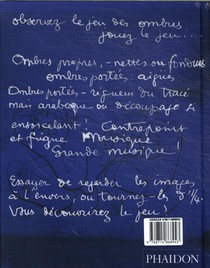 observez le jeu des ombres
jouez le jeu....
Ombres propres, - nettes ou fondues
ombres portées: aigues
Ombres portées - rigueur du tracé
mais arabesque ou découpage si
ensorcelant! Contrepoint
et fugue Musique
Grande musique!
Essayer de regarder les images
à l'envers, ou tournez-les d'¼.
Vous découvrirez le jeu!
PHAIDON